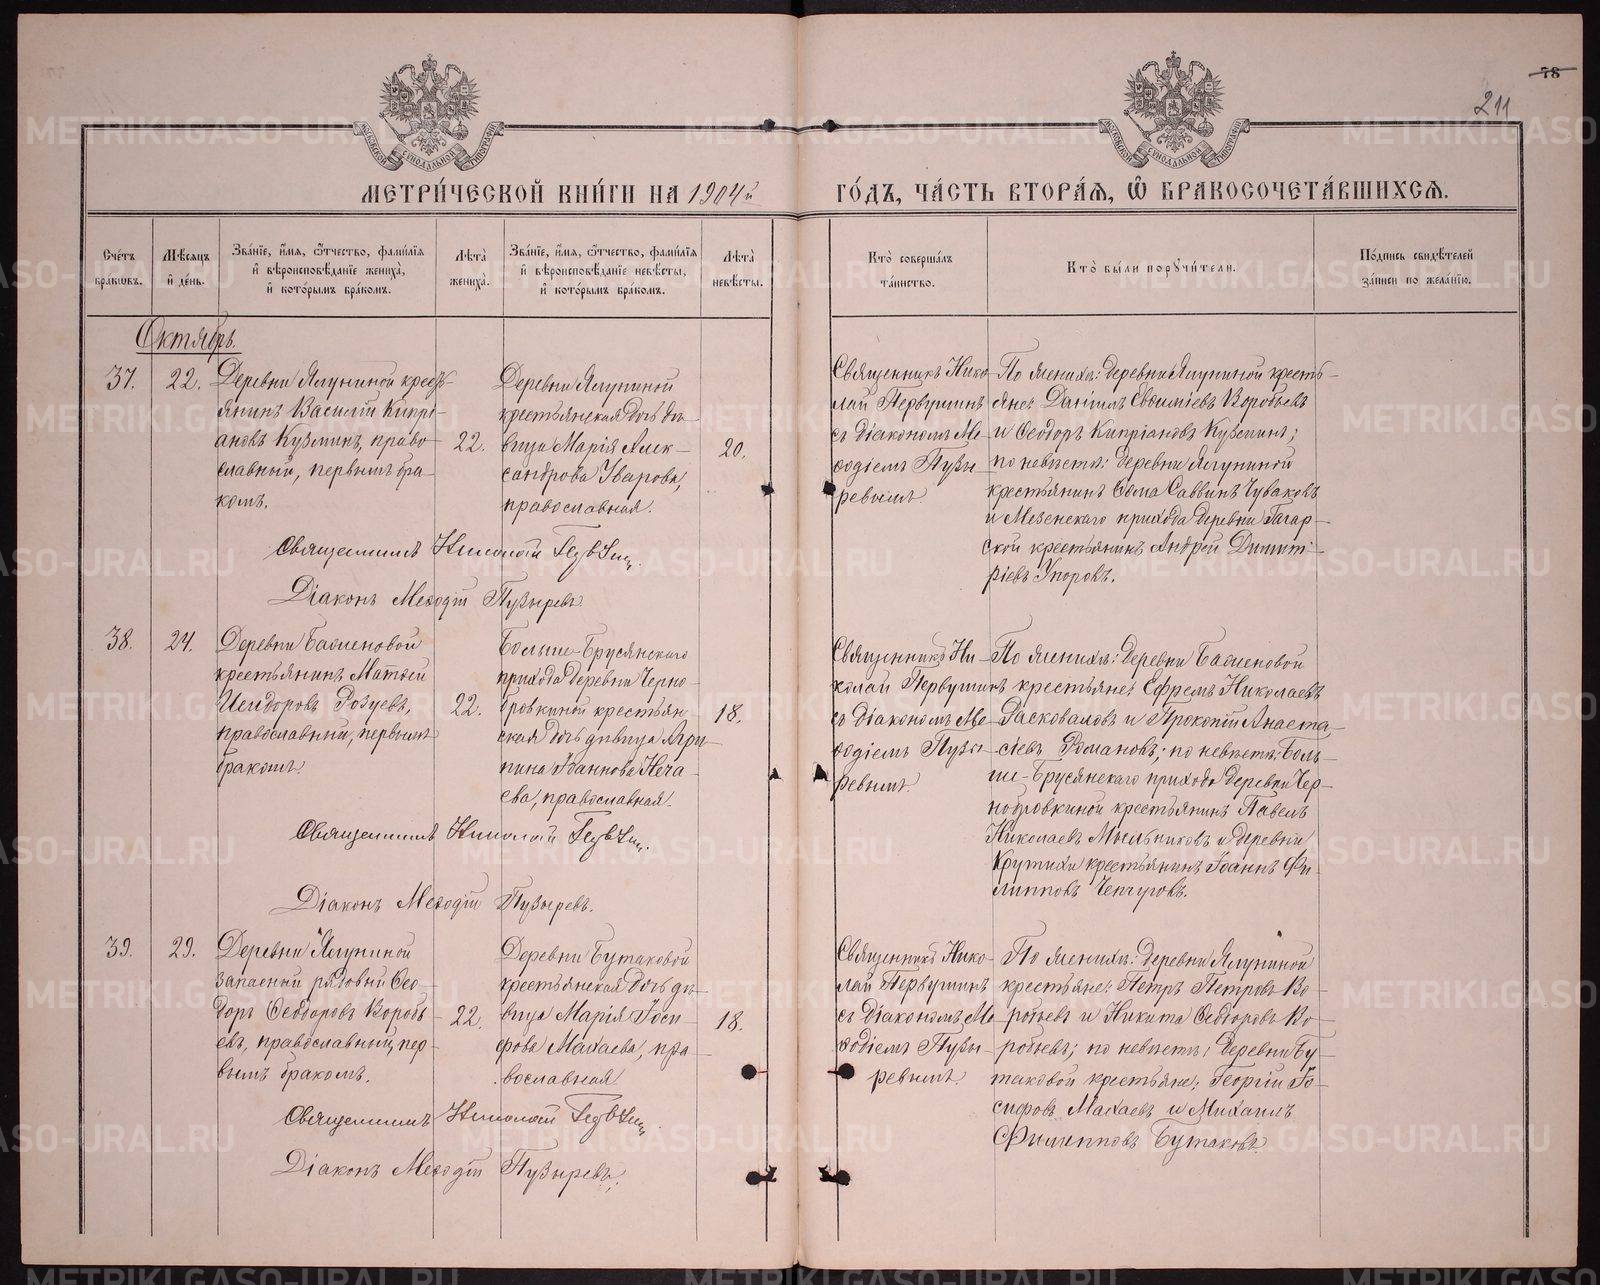 78
211
МЕТРИ́ЧЕСКОЙ КНИ́ГИ НА 1904й ГО́ДЪ, ЧА́СТЬ ВТОРА́Я, Ѽ БРАКОСОЧЕТА́ВШИХСЯ.
Сче́тъ бра́кѡвъ.
Мѣ́сяцъ и҆ де́нь.
Зва́нїе, и҆́мѧ, ѻ҆́тчество, фами́лїѧ и҆ вѣроисповѣ́данїе жениха̀, и҆ кото́рымъ бра́комъ.
Лѣ́та жениха̀.
Зва́нїе, и҆́мѧ, ѻ҆́тчество, фами́лїѧ и҆ вѣроисповѣ́данїе невѣ́сты, и҆ кото́рымъ бра́комъ.
Лѣ́та невѣ́сты.
Кто̀ соверша́лъ та́инство.
Кто̀ бы́ли порꙋчи́тели.
По́дпись свидѣ́телей за́писи по жела́нїю.
Октябрь.
37.
22.
Деревни Ялуниной кресть-
янинъ Василій Кипрі-
ановъ Кузминъ, право-
славный, первымъ бра-
комъ.
22.
Деревни Ялуниной
крестьянская дочь дѣ-
вица Марія Алек-
сандрова Уварова,
православная.
20.
Священникъ Нико-
лай Первушинъ
съ діакономъ Ме-
ѳодіемъ Пузы-
ревымъ.
По женихѣ: деревни Ялуниной кресть-
яне: Даніилъ Евѳиміевъ Воробьевъ
и Ѳеодоръ Кипріановъ Кузминъ;
по невѣстѣ: деревни Ялуниной
крестьянинъ Ѳома Саввинъ Чуваковъ
и Мезенскаго прихода деревни Гагар-
ской крестьянинъ Андрей Димит-
ріевъ Упоровъ.
Священникъ Николай Первушинъ.
Діаконъ Меѳодій Пузыревъ.
38.
24.
Деревни Баженовой
крестьянинъ Матѳей
Исидоровъ Розуевъ,
православный, первымъ
бракомъ.
22.
Больше-Брусянскаго
прихода деревни Черно-
бровкиной крестьян-
ская дочь дѣвица Агри-
пина Іоаннова Неча-
ева, православная.
18.
Священникъ Ни-
колай Первушинъ
съ діакономъ Ме-
ѳодіемъ Пузы-
ревымъ.
По женихѣ: деревни Баженовой
крестьяне: Ефремъ Николаевъ
Расковаловъ и Прокопій Анаста-
сіевъ Романовъ; по невѣстѣ: Боль-
ше-Брусянскаго прихода деревни Чер-
нобровкиной крестьянинъ Павелъ
Николаевъ Мыльниковъ и деревни
Крутихи крестьянинъ Іоаннъ Фи-
липповъ Чепчуговъ.
Священникъ Николай Первушинъ.
Діаконъ Меѳодій Пузыревъ.
39.
29.
Деревни Ялуниной
запасный рядовый Ѳео-
доръ Ѳеодоровъ Воробь-
евъ, православный, пер-
вымъ бракомъ.
22.
Деревни Бутаковой
крестьянская дочь дѣ-
вица Марія Іоси-
фова Махаева, пра-
вославная.
18.
Священникъ Нико-
лай Первушинъ
съ діакономъ Ме-
ѳодіемъ Пузы-
ревымъ.
По женихѣ: деревни Ялуниной
крестьяне: Петръ Петровъ Во-
робьевъ и Никита Ѳеодоровъ Во-
робьевъ; по невѣстѣ: деревни Бу-
таковой крестьяне: Георгій Іо-
сифовъ Махаевъ и Михаилъ
Филипповъ Бутаковъ.
Священникъ Николай Первушинъ.
Діаконъ Меѳодій Пузыревъ.